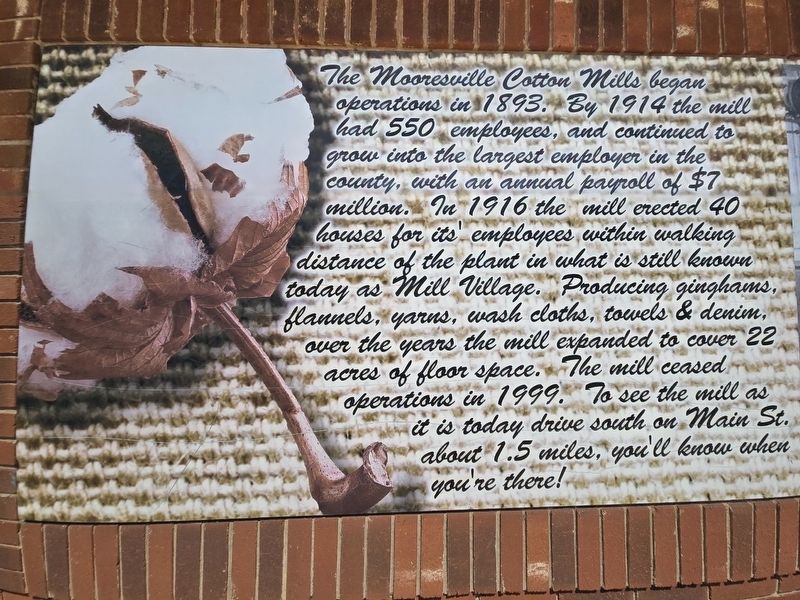 The Mooresville Cotton Mills began
operations in 1893. By 1914 the mill
had 550 employees, and continued to
grow into the largest employer in the
county, with an annual payroll of $7
million. In 1916 the mill erected 40
houses for its' employees within walking
distance of the plant in what is still known
today as Mill Village. Producing ginghams,
flannels, yarns, wash cloths, towels & denim,
over the years the mill expanded to cover 22
acres of floor space. The mill ceased
operations in 1999. To see the mill as
it is today drive south on Main St.
about 1.5 miles, you'll know when
you're there!